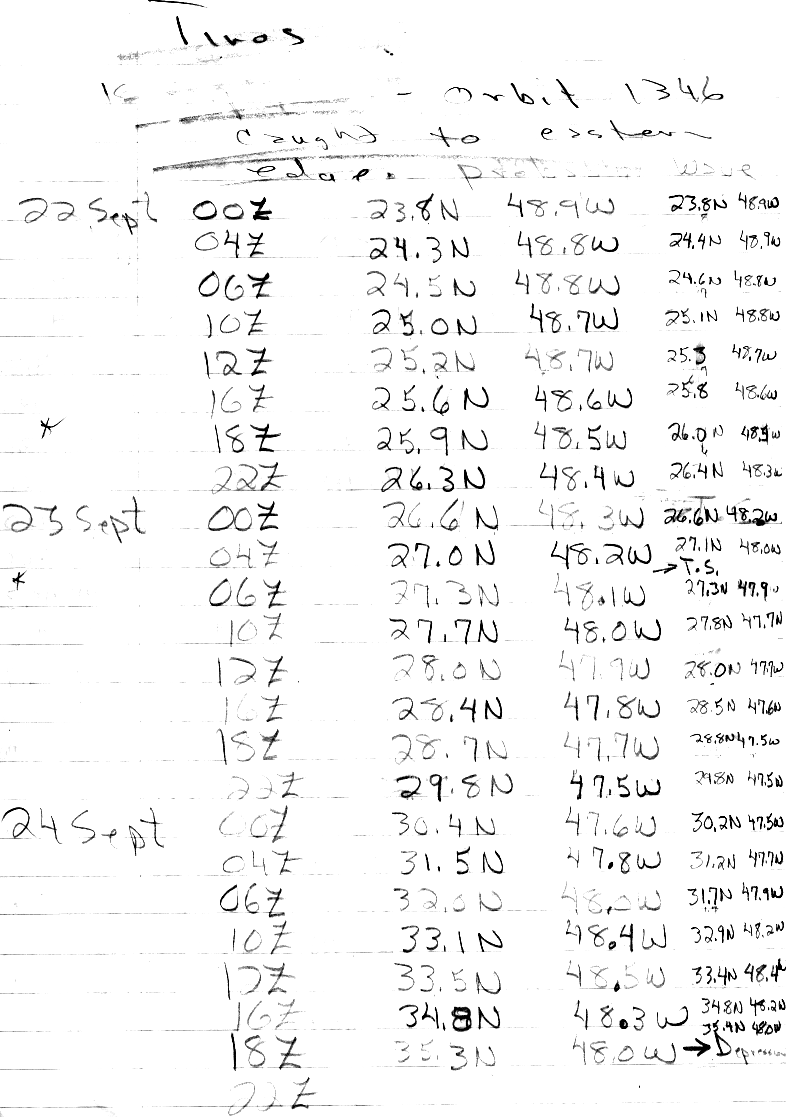 Tiros
- orbit 1346
caught to eastern
edge. wave
22 Sept 00Z 23.8N 48.9W 23.8N 48.9W
04Z 24.3N 48.8W 24.4N 48.9W
06Z 24.5N 48.8W 24.6N 48.8W
10Z 25.0N 48.7W 25.1N 48.8W
12Z 25.2N 48.7W 25.3 48.7W
16Z 25.6N 48.6W 25.8 48.6W
* 18Z 25.9N 48.5W 26.0N 48.5W
22Z 26.3N 48.4W 26.4N 48.3W
23 Sept 00Z 26.6N 48.3W 26.6N 48.2W
04Z 27.0N 48.2W 27.1N 48.0W
→T.S.
* 06Z 27.3N 48.1W 27.3N 47.9W
10Z 27.7N 48.0W 27.8N 47.7W
12Z 28.0N 47.9W 28.0N 47.7W
16Z 28.4N 47.8W 28.5N 47.6W
18Z 28.7N 47.7W 28.8N 47.5W
22Z 29.8N 47.5W 29.8N 47.5W
24 Sept 00Z 30.4N 47.6W 30.2N 47.5W
04Z 31.5N 47.8W 31.2N 47.7W
06Z 32.0N 48.0W 31.7N 47.9W
10Z 33.1N 48.4W 32.9N 48.2W
12Z 33.5N 48.5W 33.4N 48.4W
16Z 34.8N 48.3W 34.8N 48.2W
35.4N 48.0W
18Z 35.3N 48.0W → Depression
22Z